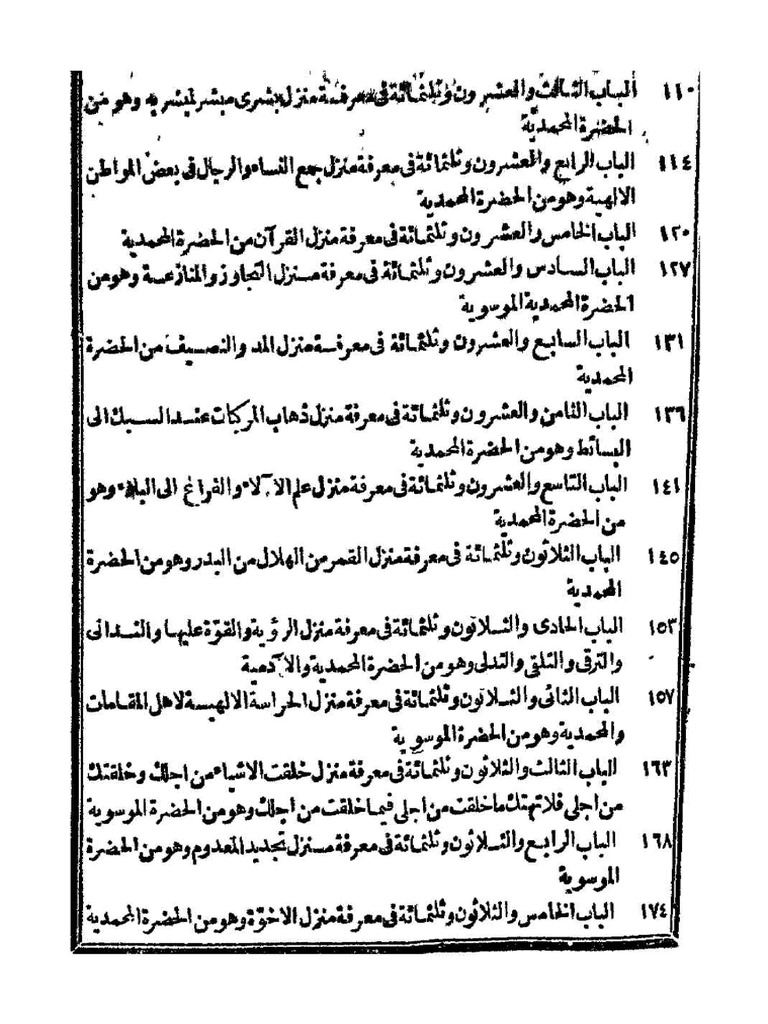 ١١٠ الباب الثالث والعشرون وثلثمائة فى معرفة منزل بشرى مبشر لمبشر به وهو من
الحضرة المحمدية
١١٤ الباب الرابع والعشرون وثلثمائة فى معرفة منزل جمع النساء والرجال فى بعض المواطن
الالهية وهو من الحضرة المحمدية
١٢٠ الباب الخامس والعشرون وثلثمائة فى معرفة منزل القرآن من الحضرة المحمدية
١٢٧ الباب السادس والعشرون وثلثمائة فى معرفة منزل التجاوز والمنازعة وهو من
الحضرة المحمدية الموسوية
١٣١ الباب السابع والعشرون وثلثمائة فى معرفة منزل المد والنصيف من الحضرة
المحمدية
١٣٦ الباب الثامن والعشرون وثلثمائة فى معرفة منزل ذهاب المركبات عند السبك الى
البسائط وهو من الحضرة المحمدية
١٤١ الباب التاسع والعشرون وثلثمائة فى معرفة منزل علم الآلاء والفراغ الى البلاء وهو
من الحضرة المحمدية
١٤٥ الباب الثلاثون وثلثمائة فى معرفة منزل القمر من الهلال من البدر وهو من الحضرة
المحمدية
١٥٣ الباب الحادى والثلاثون وثلثمائة فى معرفة منزل الرؤية والقوة عليها والتدانى
والترقى والتلقى والتدلى وهو من الحضرة المحمدية والآدمية
١٥٧ الباب الثانى والثلاثون وثلثمائة فى معرفة منزل الحراسة الالهية لاهل المقامات
والمحمدية وهو من الحضرة الموسوية
١٦٣ الباب الثالث والثلاثون وثلثمائة فى معرفة منزل خلقت الاشياء من اجلك وخلقتك
من اجلى فلا تهتك ما خلقت من اجلى فيما خلقت من اجلك وهو من الحضرة الموسوية
١٦٨ الباب الرابع والثلاثون وثلثمائة فى معرفة منزل تجديد المعدوم وهو من الحضرة
الموسوية
١٧٤ الباب الخامس والثلاثون وثلثمائة فى معرفة منزل الاخوة وهو من الحضرة المحمدية